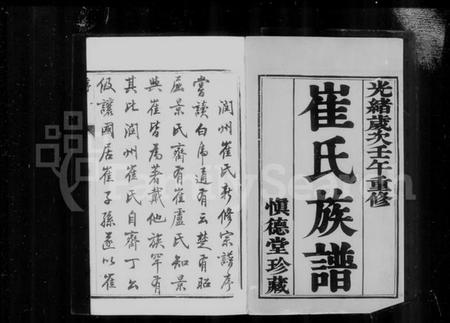 光緒歲次壬午重修
崔氏族譜
慎德堂珍藏
潤州崔氏新修宗譜序
嘗讀白虎通有云楚有昭
屈景氏齊有崔盧氏知景
與崔皆為著戴他族罕有
其比潤州崔氏自齊丁公
伋讓國居崔子孫遂以崔